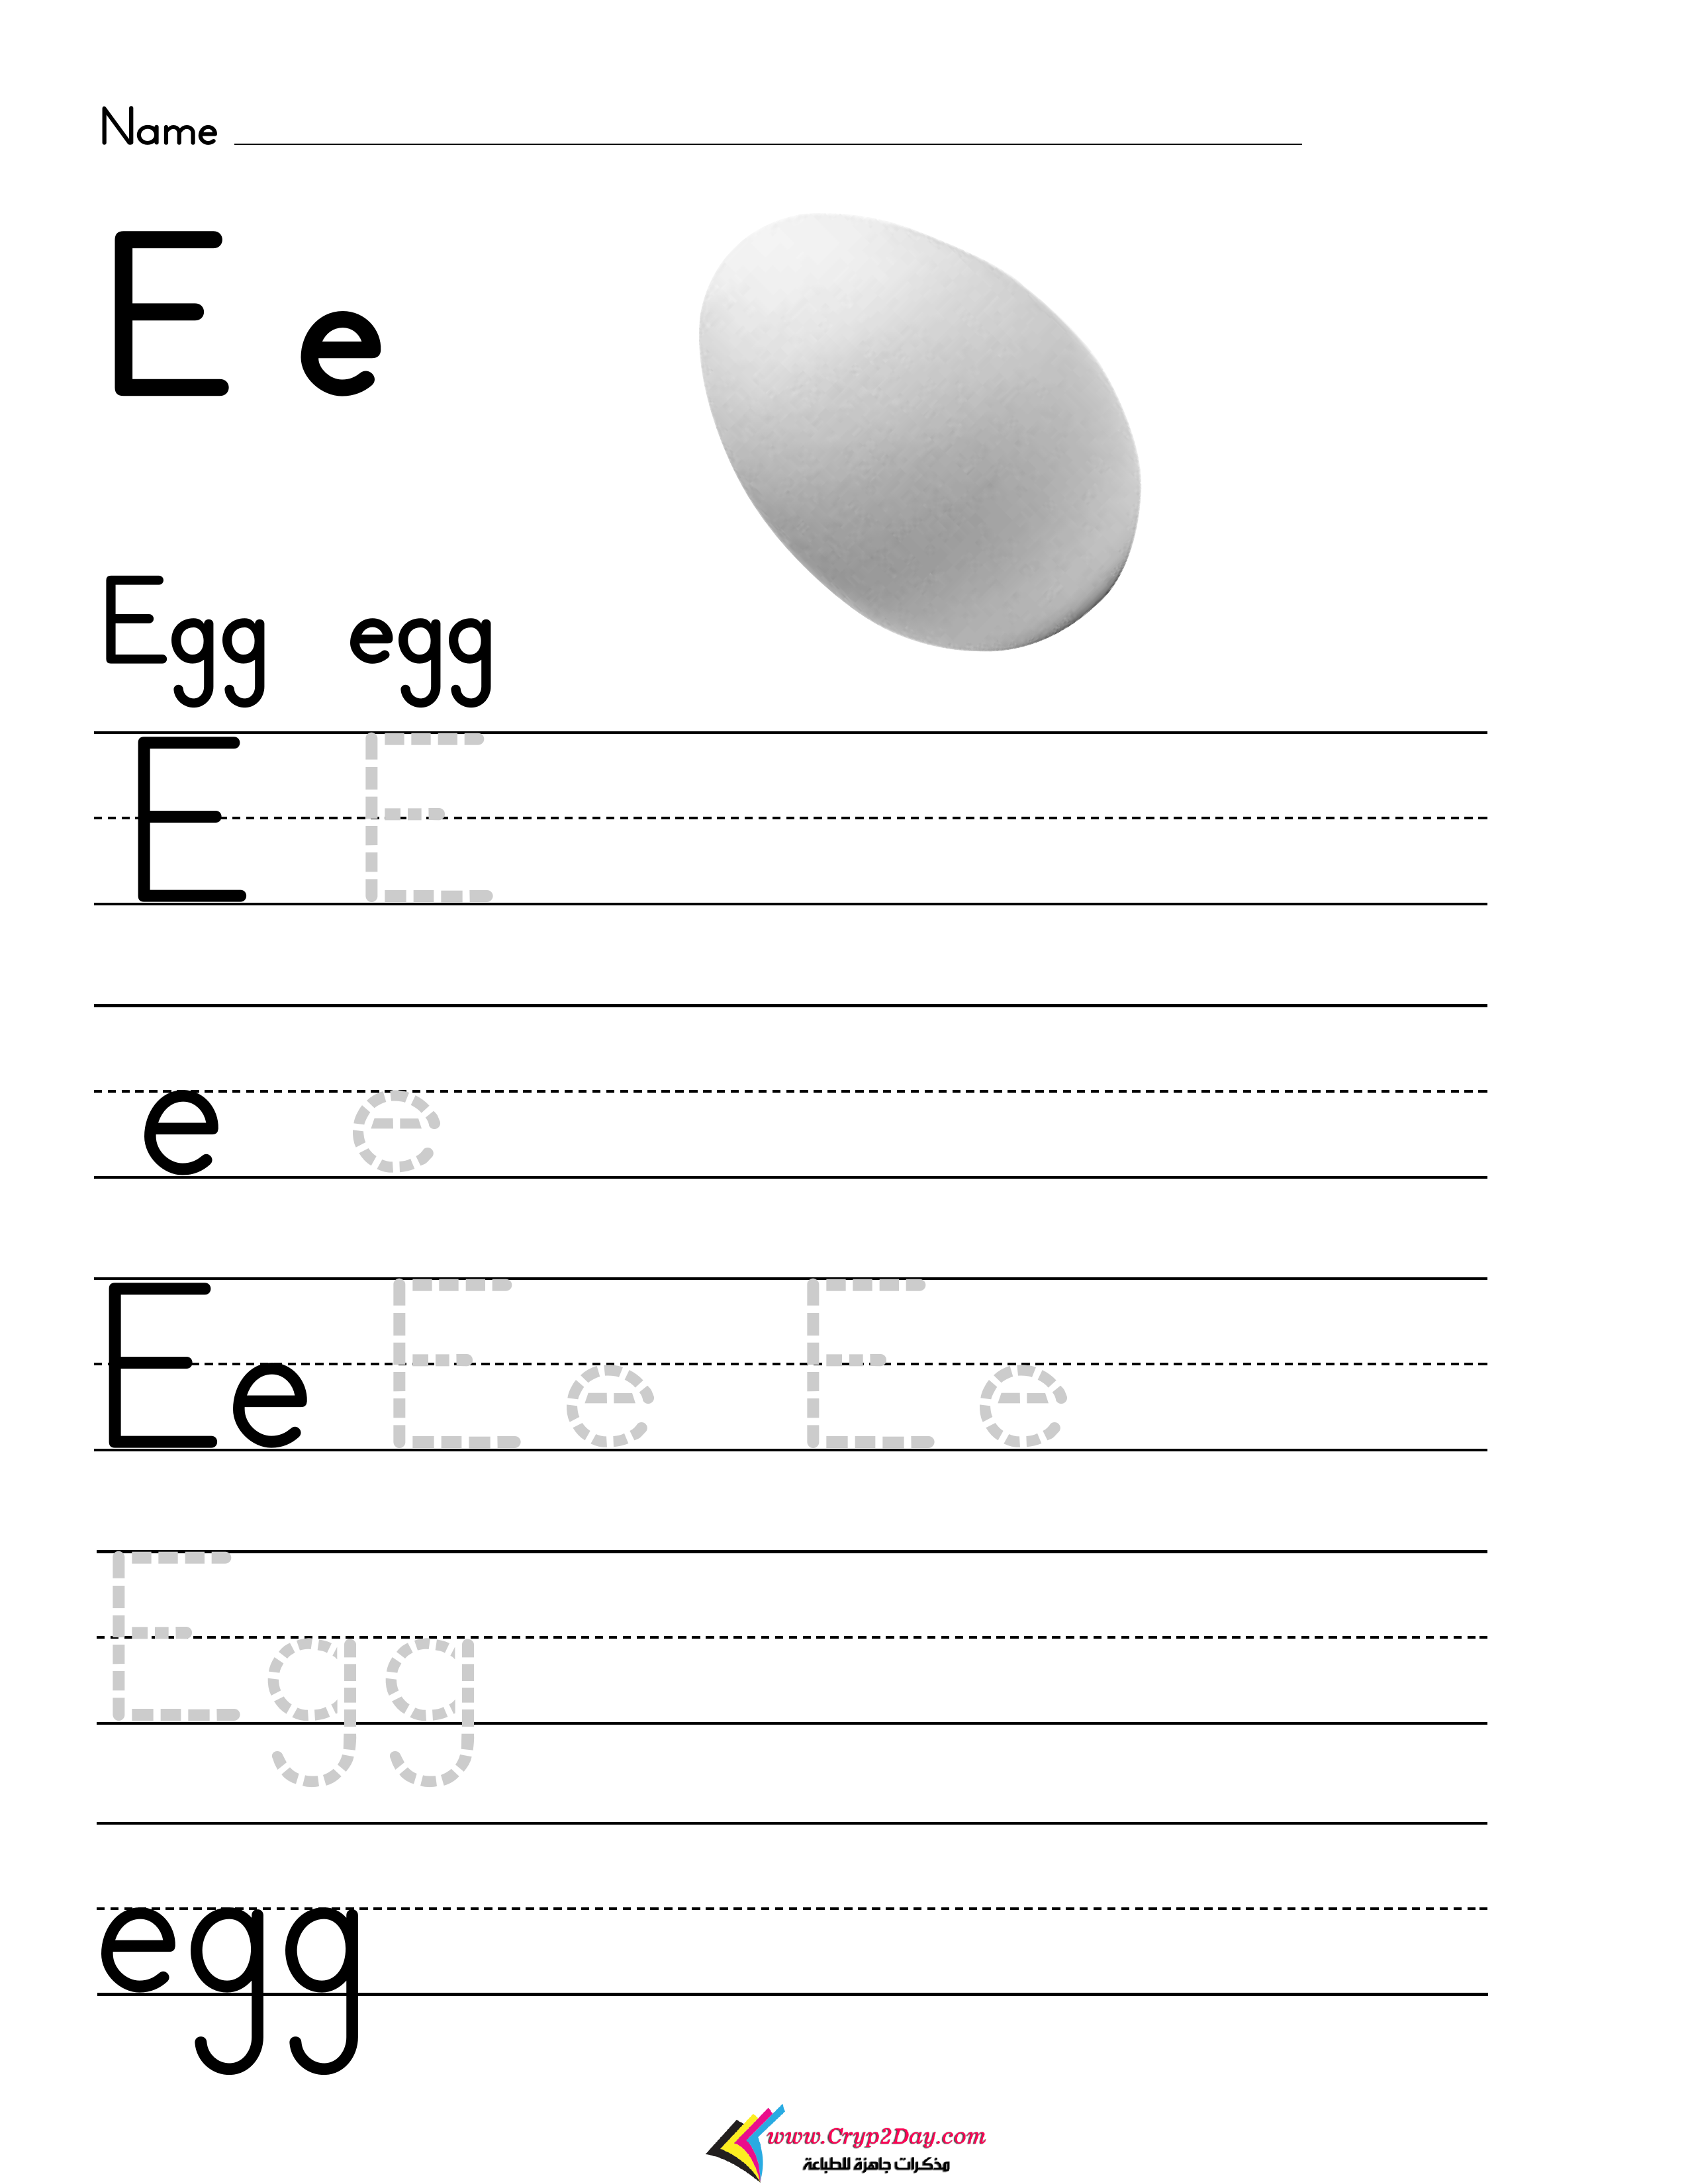 Name
E e
Egg egg
E E
e e
Ee E e E e
Egg
egg
www.Cryp2Day.com
مذكرات جاهزة للطباعة